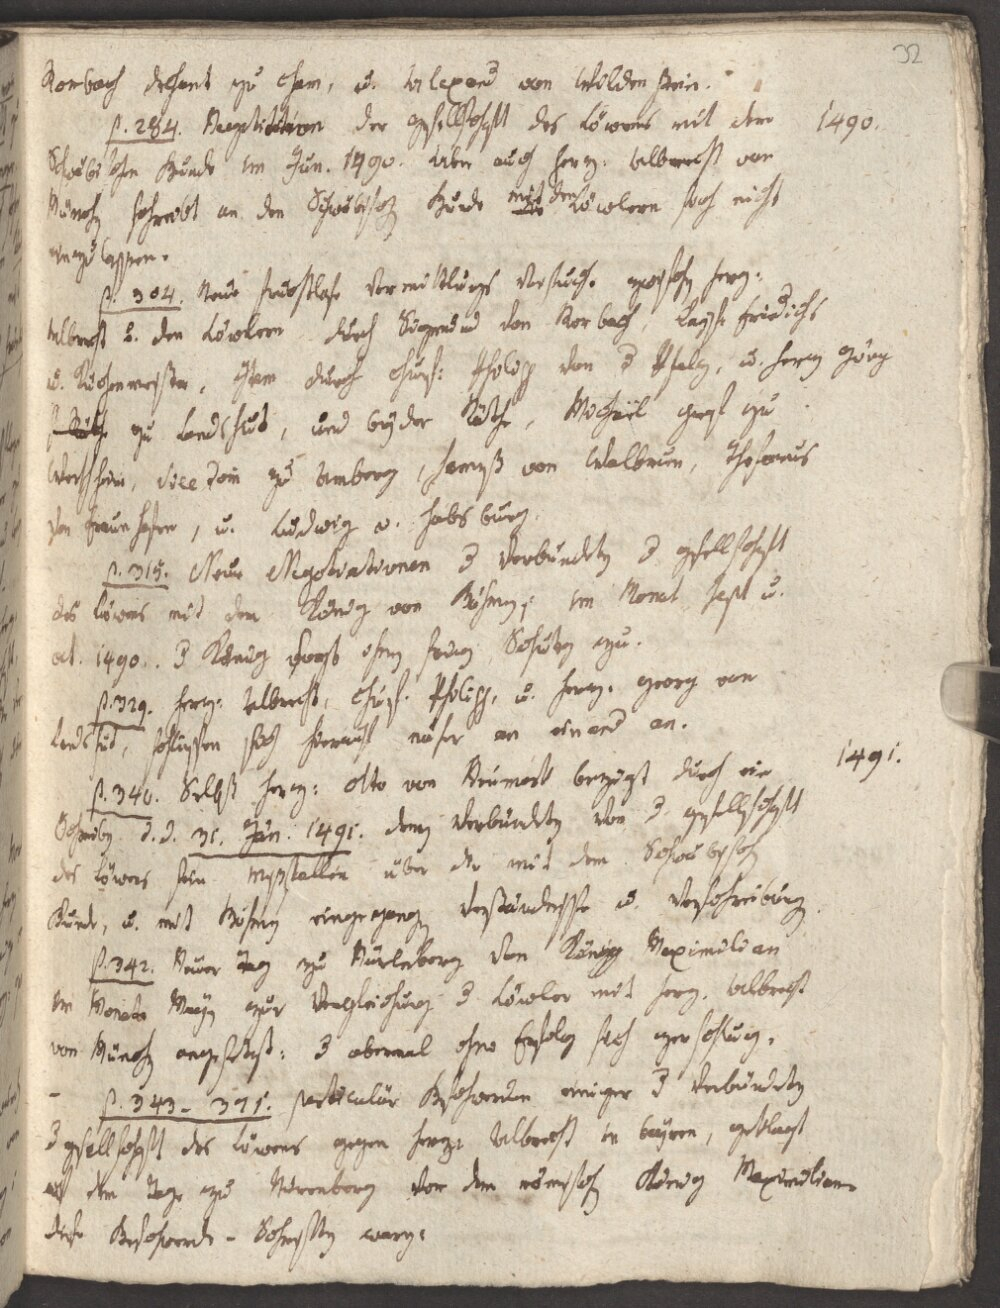 32
Rorbach dechant zu Cham, u. Alexand von Wildenstein.
p. 284. Negotiationen der gesellschaft des Löwens mit dem 1490.
Schwäbischen Bunde im Jun. 1490. Aber auch Herz. Albrecht von
Münch schreibt an den Schwäbisch Bunde mit den Löwlern sich nicht
einzulassen.
p. 304. Neue fruchtlose Vermittlungs Versuche zwisch Herz:
Albrecht u. den Löwlern durch Sigmund von Rorbach, Kays. Friedrichs
u. Kuchenmeister, Item durch Churf: Philipp von d Pfalz, u. Herz Görg
zu Landshut, und beyder Räthe, Michael graf zu
Wertheim, Vicedom zu Amberg, Hanß von Walbrun, Thesarus
von Fraunhofen, u. Ludwig v. Habsburg.
p. 315. Neue Negotiationen d Verbündetn d gesellschaft
des Löwens mit dem König von Böhmen, im Monat Sept u.
oct. 1490. d König sagt ihnen seinen Schutz zu.
p. 329. Herz: Albrecht, Churf. Philipp, u. Herz. Georg von
Landshut, schliessen sich hierauf näher an einand an.
p. 340. Selbst Herz: Otto von Neumarkt bezeigt durch ein 1491.
Schreiben d. d. 31. Jan. 1491. den Verbündetn von d gesellschaft
des Löwens sein Mißfallen über die mit dem Schwäbisch
Bunde, u. mit Böhmen eingegangen Verständnisse u. Verschreibung
p. 342. Neuer Tag zu Nürnberg von König Maximilian
im Monate May zur Vergleichung d Löwler mit Herz. Albrecht
von Münch angesetzt: d abermal ohne Erfolg sich zerschlug.
p. 343 - 371. particular Beschwerden einiger d Verbündetn
d gesellschaft des Löwens gegen Herzg Albrecht in Bayern, geklagt
auf dem Tage zu Nürenberg vor dem römisch König Maximilian
diese Beschwerde - Schriften waren: